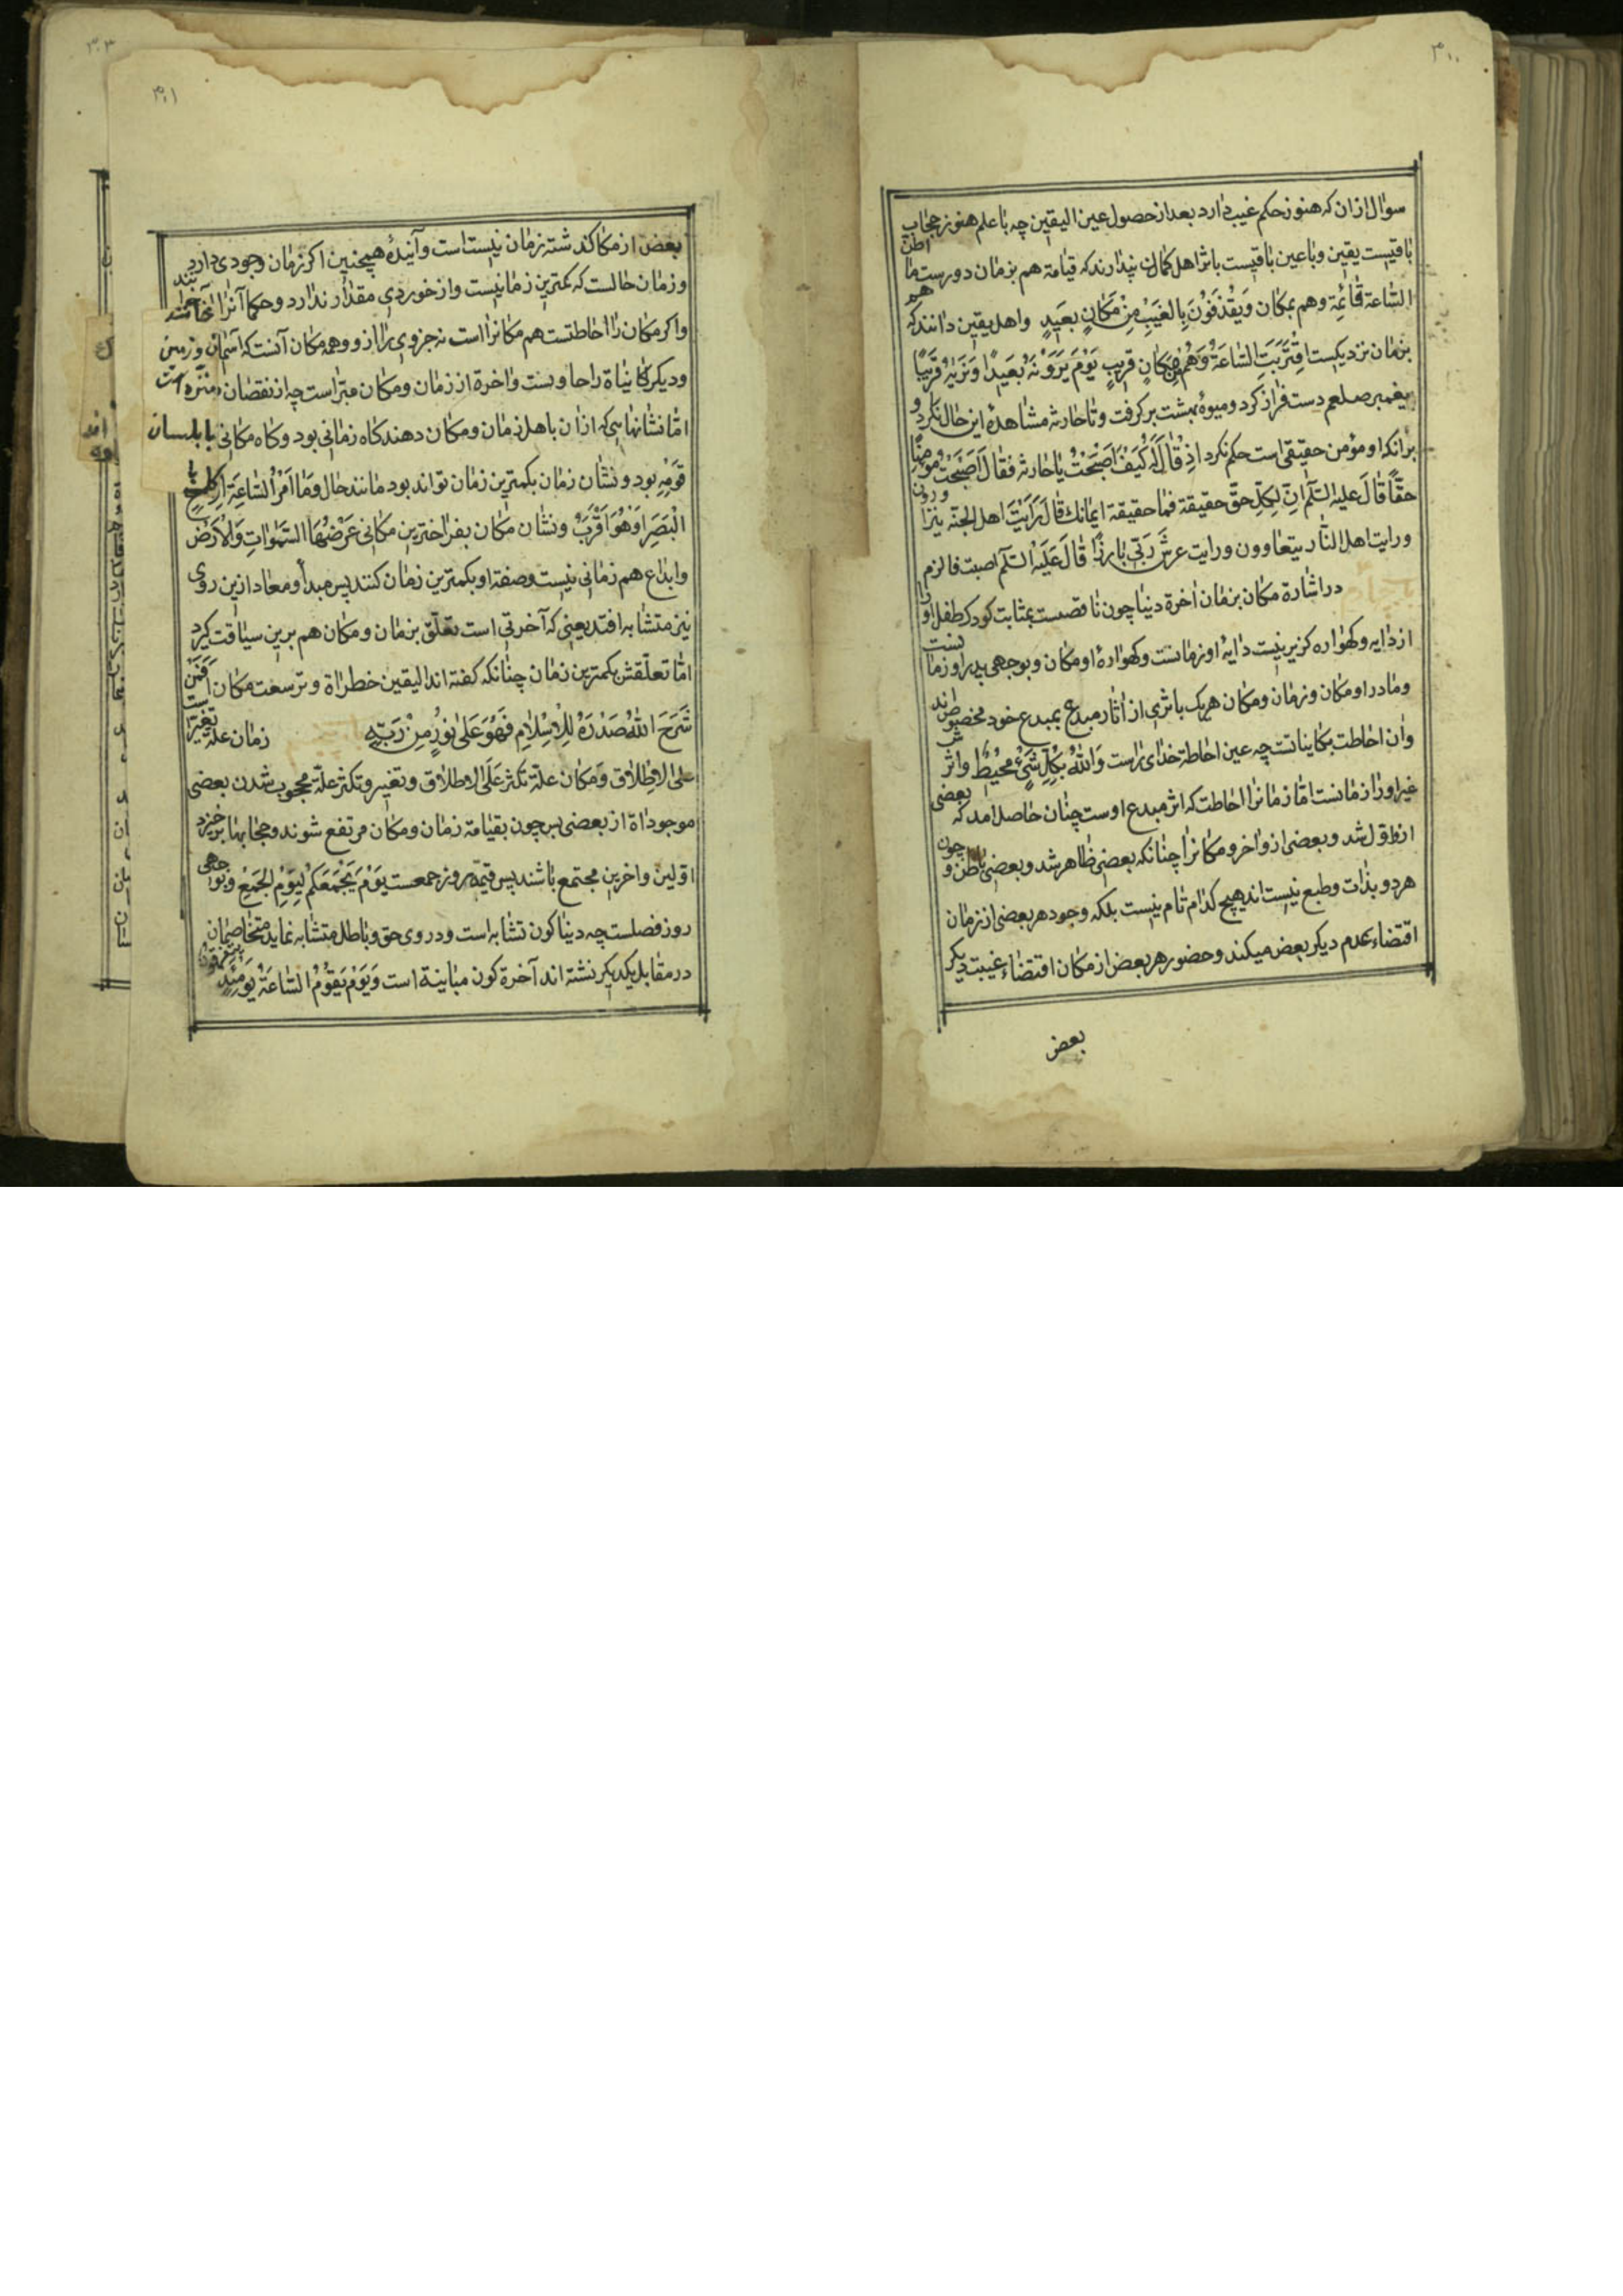 ۳۰۰
سوال از ان که هنوز حکم غیب دارد بعد از حصول عین الیقین چه با علم هنوز حجاب
باقیست یقین وباعین باقیست باثر اهل کمان پندارند که قیامة هم بزمان دورست ما اظن
الساعة قائمة وهم بمکان ویقذفون بالغیب من مکان بعید واهل یقین دانند که هم
بزمان نزدیکست اقتربت الساعة وهم بمکان قریب یوم یرونه بعیدا ونریه قریبا
پیغمبر صلعم دست فراز کرد ومیوهٔ بهشت برکرفت وتا حارثه مشاهدهٔ این حال نکرد و
برانکه او مؤمن حقیقی است حکم نکرد اذ قال له کیف اصبحت یا حارثه فقال اصبحت مومنا
حقا قال علیه السلم ان لکل حق حقیقة فما حقیقة ایمانک قال رایت اهل الجنة یتزاورون
ورایت اهل النار یتعاوون ورایت عرش ربی بارزا قال علیه السلم اصبت فالزم
در اشارة مکان بزمان اخرة دنیا چون ناقصست بمثابت کودک طفل او را
از دایه وکهواره کزیر نیست دایهٔ او زمانست وکهوارهٔ او مکان وبوجهی پدر او زمانست
ومادر او مکان وزمان ومکان هر یک باثری از اثار مبدع بمبدع خود مخصوصند
وان احاطت بکایناتست چه عین احاطة خدای راست والله بکل شیء محیط واثرش
غیر او را زمانست اما زمانرا احاطت که اثر مبدع اوست چنان حاصل امد که بعضی
ازو اول شد وبعضی ازو اخر ومکانرا چنانکه بعضی ظاهر شد وبعضی باطن و چون
هر دو بذات وطبع نیست اند هیچ کدام تام نیست بلکه وجود هر بعضی از زمان
اقتضاء عدم دیکر بعض میکند وحضور هر بعض از مکان اقتضاء غیبت دیکر
بعض
۳۰۱
بعض از مکان کذشته زمان نیست است وآیندهٔ همچنین اکر زمان وجودی دارد
وزمان حالست که کمترین زمانیست واز خوردی مقدار ندارد وحکما آنرا
واکر مکان را احاطتست هم مکانرا است نه جزوی را ازو وهمه مکان آنست که آسمان وزمین
ودیکر کاینات را حاویست واخرة از زمان ومکان مبراست چه از نقصان منزه است
اما نشانهایی که از ان باهل زمان ومکان دهند کاه زمانی بود وکاه مکانی
قومه بود ونشان زمان بکمترین زمان تواند بود مانند حال وما امر الساعة الا کلمح
البصر او هو اقرب ونشان مکان بفراخترین مکانی عرضها السموات والارض
وابداع هم زمانی نیست وصفة او بکمترین زمان کنند پس مبدا ومعاد ازین روی
نیز متشابه افتد یعنی که آخرتی است تعلق بزمان ومکان هم برین سیاقت کیرد
اما تعلقش بکمترین زمان چنانکه کفته اند الیقین خطراة وبرسعت مکان افمن
شرح الله صدره للاسلام فهو علی نور من ربه زمان علة تغیر است
علی الاطلاق ومکان علة تکثر علی الاطلاق وتغیر وتکثر علة محجوب شدن بعضی
موجوداة از بعضی پس چون بقیامة زمان ومکان مرتفع شوند وحجابها برخیزد
اولین واخرین مجتمع باشند پس قیمة روز جمعست یوم یجمعکم لیوم الجمع وبوجهی
روز فصلست چه دنیا کون تشابه است ودر وی حق وباطل متشابه نماید متخاصمان
در مقابل یکدیکر نشته اند آخرة کون مباینة است ویوم یقوم الساعة یومئذ یتفرقون